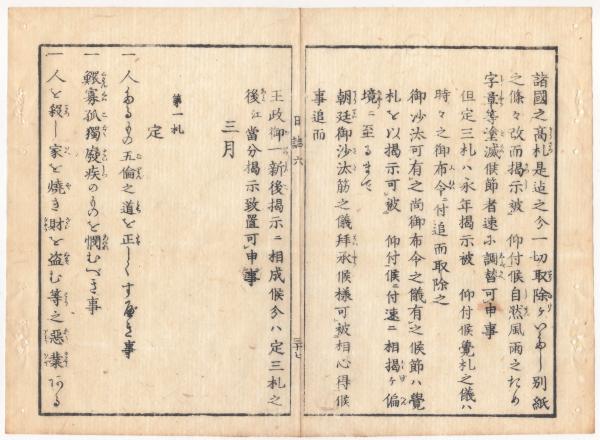 諸國之高札是迄之分一切取除ケいたし別紙
之條々改而揭示被 仰付候自然風雨之ため
字章等塗滅候節者速ニ調替可申事
但定三札ハ永年揭示被 仰付候覺札之儀ハ
時々之御布令ニ付追而取除之
御沙汰可有之尚御布令之儀有之候節ハ覺
札を以揭示可被 仰付候ニ付速ニ相揭ケ偏
境ニ至るまて
朝廷御沙汰筋之儀拜承候樣可被相心得候
事追而
日誌六
三十七
王政御一新後揭示ニ相成候分ハ定三札之
後江當分揭示致置可申事
三月
第一札
定
一 人たるもの五倫之道を正しくすへき事
一 鰥寡孤獨癈疾のものを憫むへき事
一 人を殺し家を燒き財を盗む等之惡業ある